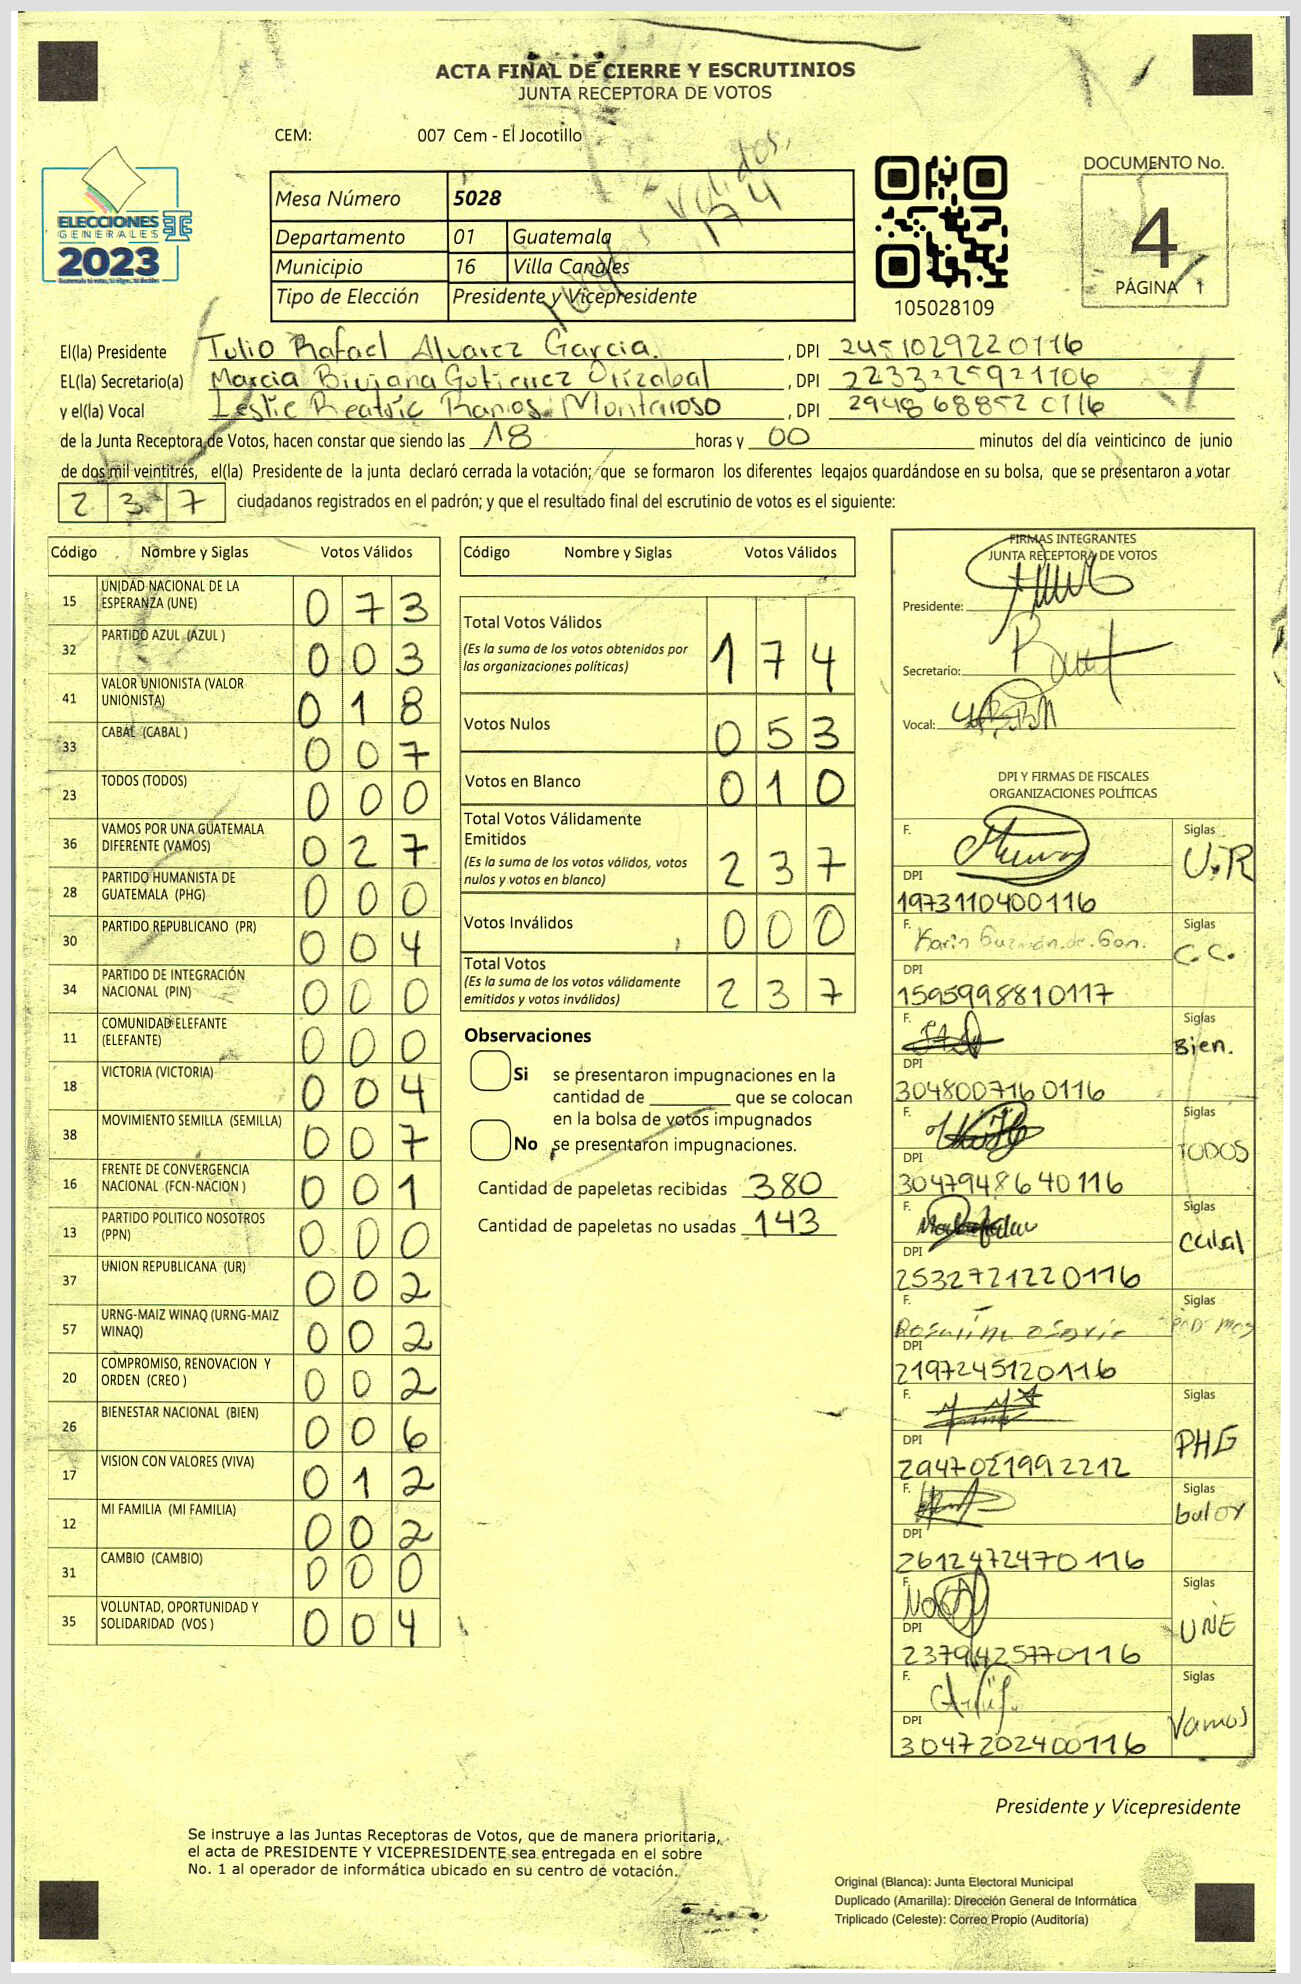 ACTA FINAL DE CIERRE Y ESCRUTINIOS
JUNTA RECEPTORA DE VOTOS
CEM: 007 Cem - El Jocotillo
ELECCIONES
GENERALES
2023
Mesa Número 5028
Departamento 01 Guatemala
Municipio 16 Villa Canales
Tipo de Elección Presidente y Vicepresidente
validos.
174
105028109
DOCUMENTO No.
4
PÁGINA 1
El(la) Presidente Tulio Rafael Alvarez Garcia. , DPI 2451029220116
EL(la) Secretario(a) Marcia Biviana Gutierrez Orizabal , DPI 2233225921106
y el(la) Vocal Leslie Beatriz Ramos Montarroso , DPI 2948688520116
de la Junta Receptora de Votos, hacen constar que siendo las 18 horas y 00 minutos del día veinticinco de junio
de dos mil veintitrés, el(la) Presidente de la junta declaró cerrada la votación; que se formaron los diferentes legajos guardándose en su bolsa, que se presentaron a votar
2 3 7 ciudadanos registrados en el padrón; y que el resultado final del escrutinio de votos es el siguiente:
Código Nombre y Siglas Votos Válidos
15 UNIDAD NACIONAL DE LA ESPERANZA (UNE) 0 7 3
32 PARTIDO AZUL (AZUL ) 0 0 3
41 VALOR UNIONISTA (VALOR UNIONISTA) 0 1 8
33 CABAL (CABAL ) 0 0 7
23 TODOS (TODOS) 0 0 0
36 VAMOS POR UNA GUATEMALA DIFERENTE (VAMOS) 0 2 7
28 PARTIDO HUMANISTA DE GUATEMALA (PHG) 0 0 0
30 PARTIDO REPUBLICANO (PR) 0 0 4
34 PARTIDO DE INTEGRACIÓN NACIONAL (PIN) 0 0 0
11 COMUNIDAD ELEFANTE (ELEFANTE) 0 0 0
18 VICTORIA (VICTORIA) 0 0 4
38 MOVIMIENTO SEMILLA (SEMILLA) 0 0 7
16 FRENTE DE CONVERGENCIA NACIONAL (FCN-NACION ) 0 0 1
13 PARTIDO POLITICO NOSOTROS (PPN) 0 0 0
37 UNION REPUBLICANA (UR) 0 0 2
57 URNG-MAIZ WINAQ (URNG-MAIZ WINAQ) 0 0 2
20 COMPROMISO, RENOVACION Y ORDEN (CREO ) 0 0 2
26 BIENESTAR NACIONAL (BIEN) 0 0 6
17 VISION CON VALORES (VIVA) 0 1 2
12 MI FAMILIA (MI FAMILIA) 0 0 2
31 CAMBIO (CAMBIO) 0 0 0
35 VOLUNTAD, OPORTUNIDAD Y SOLIDARIDAD (VOS ) 0 0 4
Código Nombre y Siglas Votos Válidos
Total Votos Válidos 1 7 4
(Es la suma de los votos obtenidos por
las organizaciones políticas)
Votos Nulos 0 5 3
Votos en Blanco 0 1 0
Total Votos Válidamente
Emitidos 2 3 7
(Es la suma de los votos válidos, votos
nulos y votos en blanco)
Votos Inválidos 0 0 0
Total Votos 2 3 7
(Es la suma de los votos válidamente
emitidos y votos inválidos)
Observaciones
Si se presentaron impugnaciones en la
cantidad de ________ que se colocan
en la bolsa de votos impugnados
No se presentaron impugnaciones.
Cantidad de papeletas recibidas 380
Cantidad de papeletas no usadas 143
FIRMAS INTEGRANTES
JUNTA RECEPTORA DE VOTOS
Presidente:
Secretario:
Vocal:
DPI Y FIRMAS DE FISCALES
ORGANIZACIONES POLÍTICAS
F. Siglas U.R
DPI
1973110400116
F. Karin Guzmán.de.Gon. Siglas C.C.
DPI
1595998810117
F. Siglas Bien.
DPI
3048007160116
F. Siglas TODOS
DPI
3047948640116
F. Siglas Cabal
DPI
2532721220116
F. Siglas
DPI
2197245120116
F. Siglas PHG
DPI
2947021992212
F. Siglas balor
DPI
2612472470116
F. Siglas UNE
DPI
2379425770116
F. Siglas Vamos
DPI
3047202400116
Presidente y Vicepresidente
Se instruye a las Juntas Receptoras de Votos, que de manera prioritaria,
el acta de PRESIDENTE Y VICEPRESIDENTE sea entregada en el sobre
No. 1 al operador de informática ubicado en su centro de votación.
Original (Blanca): Junta Electoral Municipal
Duplicado (Amarilla): Dirección General de Informática
Triplicado (Celeste): Correo Propio (Auditoría)